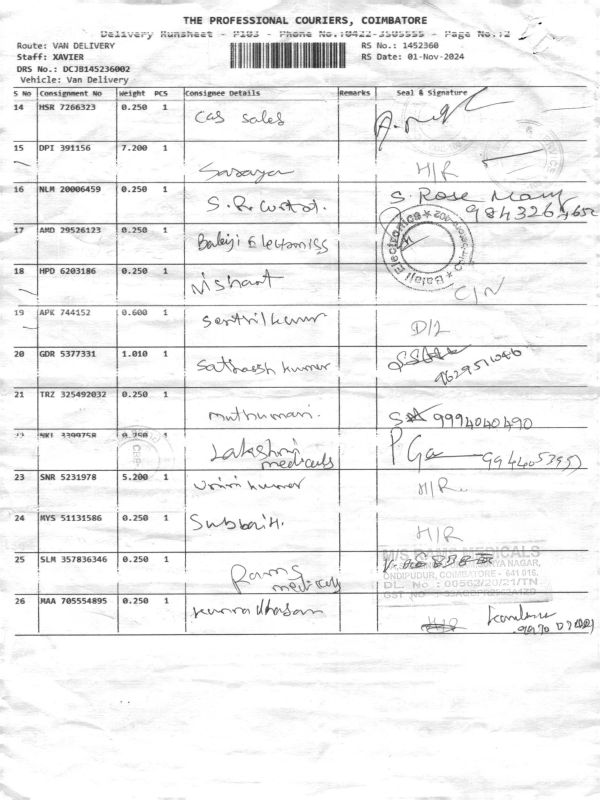 THE PROFESSIONAL COURIERS, COIMBATORE
Delivery Runsheet - P103 - Phone No.:0422-3505555 - Page No.:2
Route: VAN DELIVERY
RS No.: 1452360
Staff: XAVIER
RS Date: 01-Nov-2024
DRS No.: DCJB145236002
Vehicle: Van Delivery
S No Consignment No Weight PCS Consignee Details Remarks Seal & Signature
14 HSR 7266323 0.250 1 Cas Sales
15 DPI 391156 7.200 1 H/R
16 NLM 20006459 0.250 1 S. Rose Mary
17 AMD 29526123 0.250 1 Balaji Electronics
Balaji Electronics
18 HPD 6203186 0.250 1 Nishant C/N
19 APK 744152 0.600 1 Senthilkumar D/L
20 GDR 5377331 1.010 1 Sathaesh kumar
21 TRZ 325492032 0.250 1 muthumari. 9994040490
22 NKL 3399758 0.250 1 Lakshmi medicals
23 SNR 5231978 5.200 1 H/R.
24 MYS 51131586 0.250 1 Subbaih. H/R
25 SLM 357836346 0.250 1 Rams medicals
M/S RAMS MEDICALS
ONDIPUDUR, COIMBATORE - 641 016.
DL. No : 00563/20/21/TN
26 MAA 705554895 0.250 1 Kannadhasan